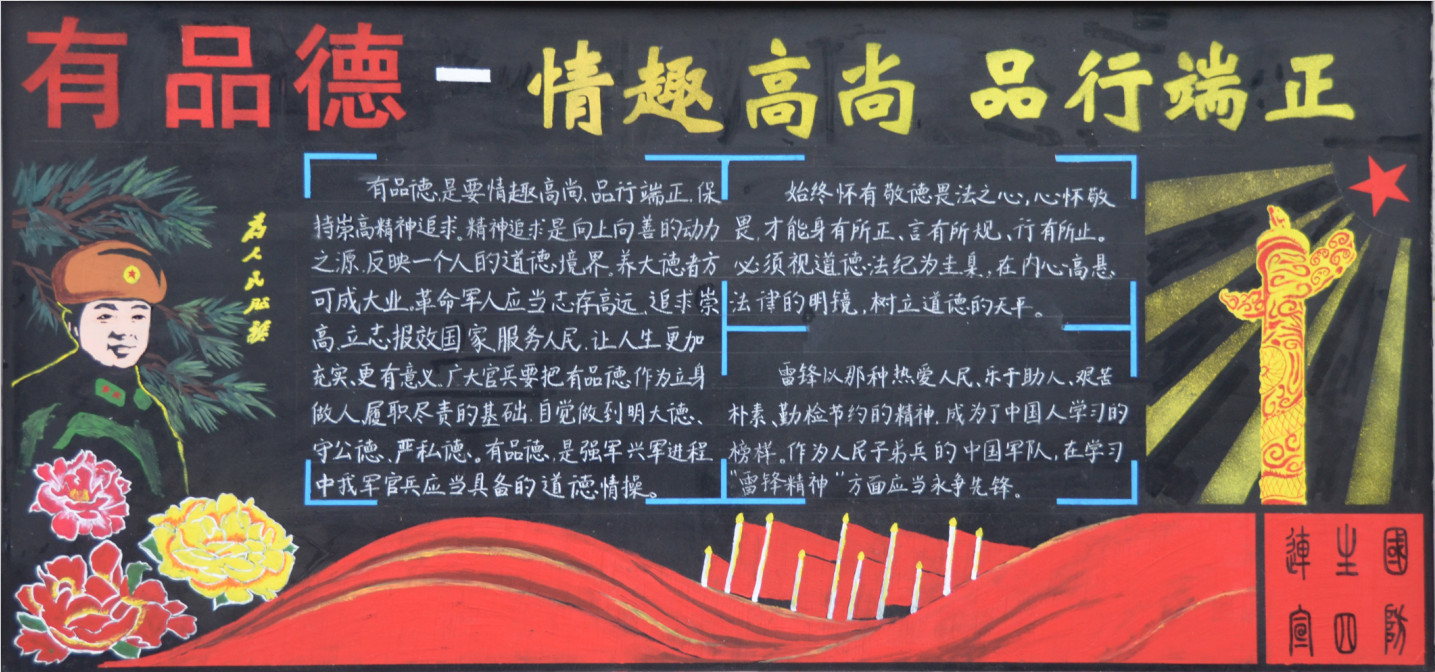 有品德-情趣高尚 品行端正
为人民服务
有品德,是要情趣高尚、品行端正,保
持崇高精神追求。精神追求是向上向善的动力
之源,反映一个人的道德境界。养大德者方
可成大业,革命军人应当志存高远,追求崇
高,立志报效国家,服务人民,让人生更加
充实、更有意义。广大官兵要把有品德作为立身
做人、履职尽责的基础,自觉做到明大德、
守公德、严私德。有品德,是强军兴军进程
中我军官兵应当具备的道德情操。
始终怀有敬德畏法之心,心怀敬
畏,才能身有所正、言有所规、行有所止。
必须视道德法纪为圭臬,在内心高悬
法律的明镜,树立道德的天平。
雷锋以那种热爱人民、乐于助人、艰苦
朴素、勤俭节约的精神,成为了中国人学习的
榜样。作为人民子弟兵的中国军队,在学习
“雷锋精神”方面应当永争先锋。
國防
生四
連宣